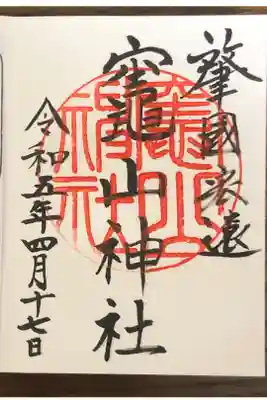 肇國宏遠
竃山神社
令和五年四月十七日